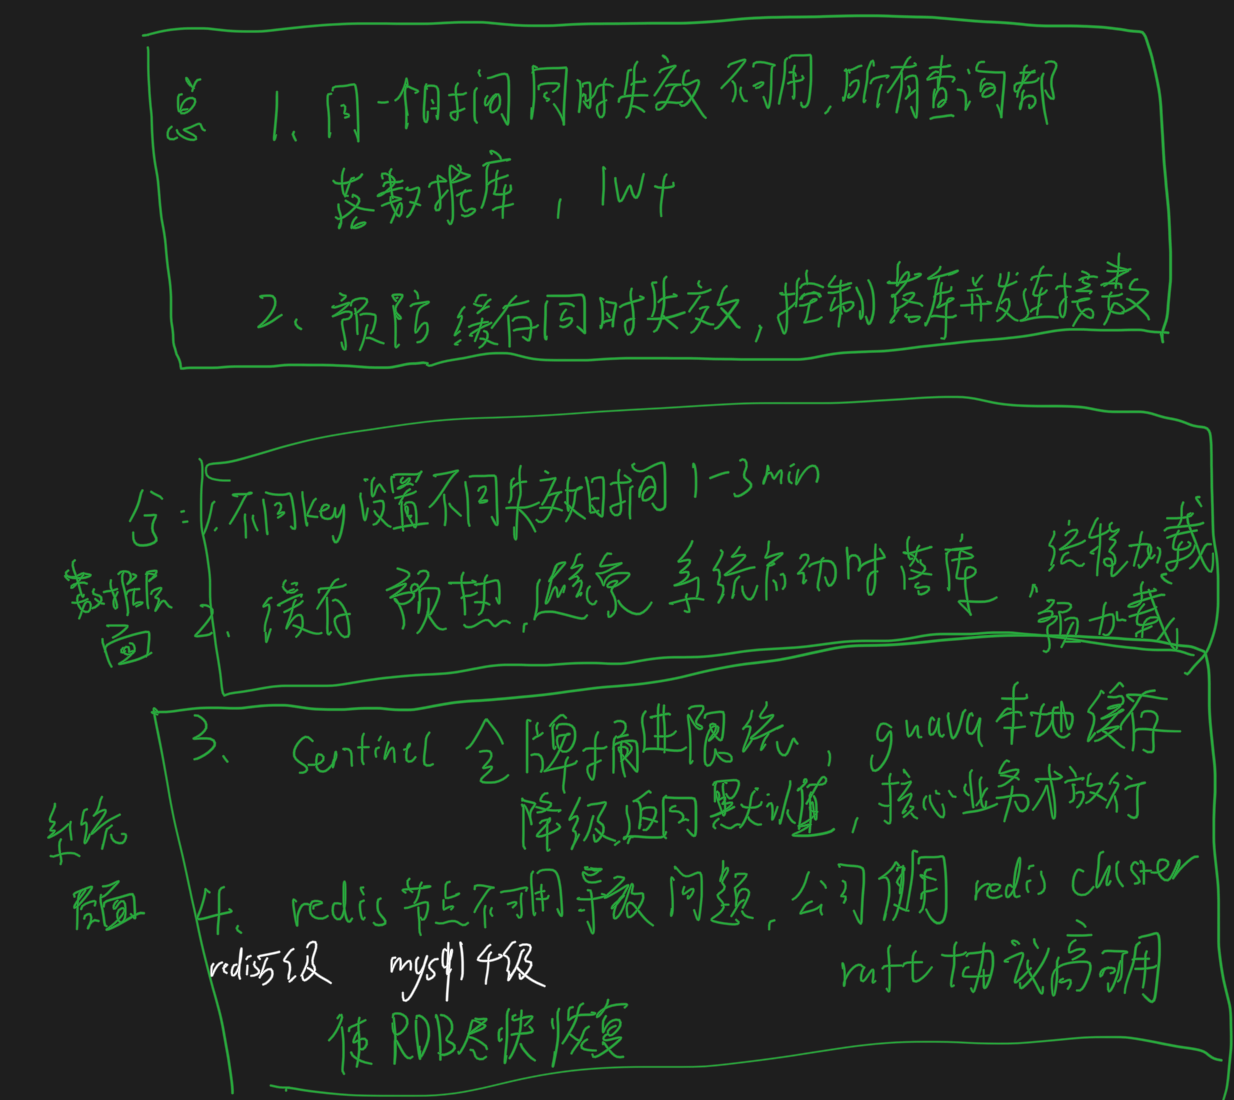 总 1、同一个时间同时失效不可用,所有查询都
落数据库,1W+
2、预防缓存同时失效,控制落库并发连接数
分: 1.不同key设置不同失效时间 1-3min
数据层面 2、缓存预热,避免系统启动时落库
倍增加载
预加载
系统层面
3、Sentinel 令牌桶进限流,guava本地缓存
降级返回默认值,核心业务才放行
4、redis节点不可用导致问题,公司使用redis cluster
raft协议高可用
redis万级 mysql千级
使RDB尽快恢复